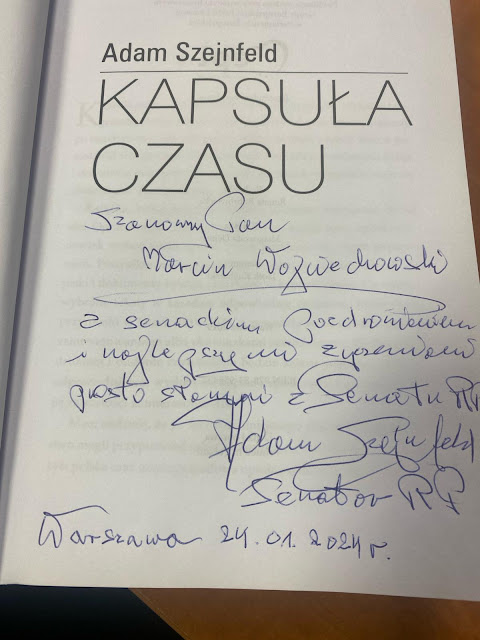 Adam Szejnfeld
KAPSUŁA
CZASU
Szanowny Pan
Marcin Wojciechowski
z senackim pozdrowieniem
i najlepszymi życzeniami
prosto z Senatu RP
Adam Szejnfeld
Senator RP
Warszawa 24.01.2024 r.